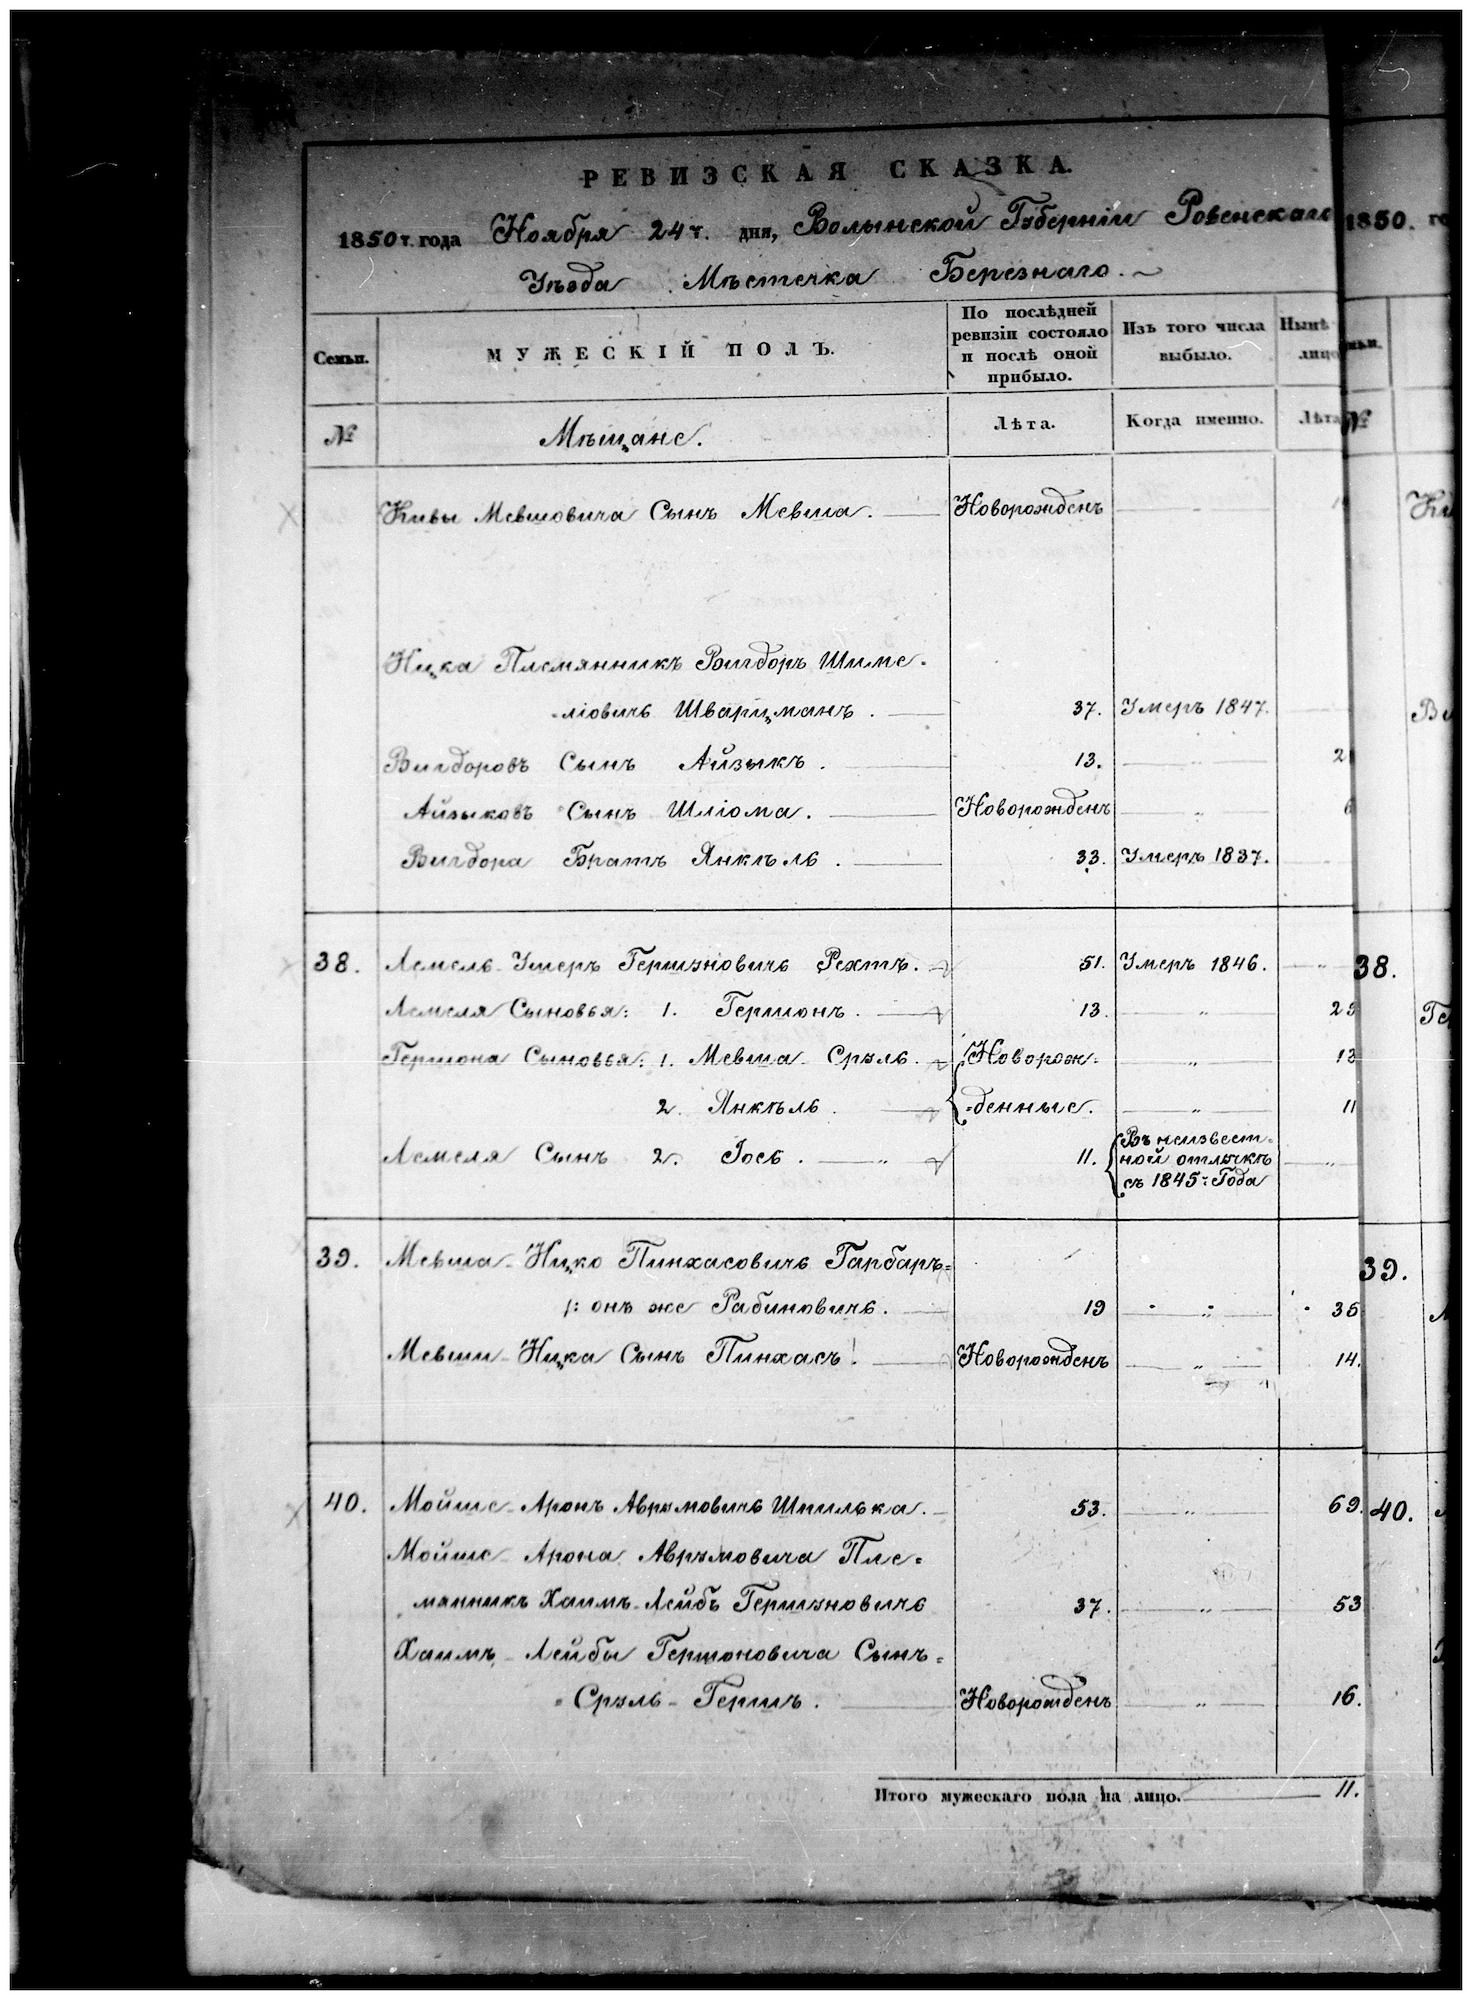 РЕВИЗСКАЯ СКАЗКА.
1850 г. года Ноября 24 г. дня, Волынской Губерніи Ровенскаго
Уѣзда Мѣстечка Березнаго.
Семьи.
МУЖЕСКІЙ ПОЛЪ.
По послѣдней
ревизіи состояло
и послѣ оной
прибыло.
Изъ того числа
выбыло.
Нынѣ
лицо
№
Мѣщане.
Лѣта.
Когда именно.
Лѣта
Кивы Мевшовича Сынъ Мевша. Новорожденъ
Ицка Племянникъ Вигдоръ Шмме-
-ліовичь Шварцманъ. 37. Умеръ 1847.
Вигдоровъ Сынъ Айзыкъ. 13. 2
Айзыковъ Сынъ Шліома. Новорожденъ 6
Вигдора Братъ Янкѣль. 33. Умеръ 1837.
38. Лемель-Умеръ Гершоновичь Рехтъ. 51. Умеръ 1846.
Лемеля Сыновья: 1. Гершонъ. 13. 29
Гершона Сыновья: 1. Мевша-Сруль. Новорож-
2. Янкѣль. -денные. 11
Лемеля Сынъ 2. Іось. 11. Въ неизвест-
ной отлучкѣ
съ 1845: Года
39. Мевша-Ицко Пинхасовичь Гарбаръ-
/: онъ же Рабиновичь. 19 35
Мевши-Ицка Сынъ Пинхасъ. Новорожденъ 14.
40. Мойше-Аронъ Аврумовичь Шпилька. 53. 69.
Мойше-Арона Аврумовича Пле-
мянникъ Хаимъ-Лейбъ Гершоновичь 37. 53
Хаимъ-Лейбы Гершоновича Сынъ-
-Сруль-Гершъ. Новорожденъ 16.
Итого мужескаго пола на лицо. 11.
1850. го
№
38.
39.
40.